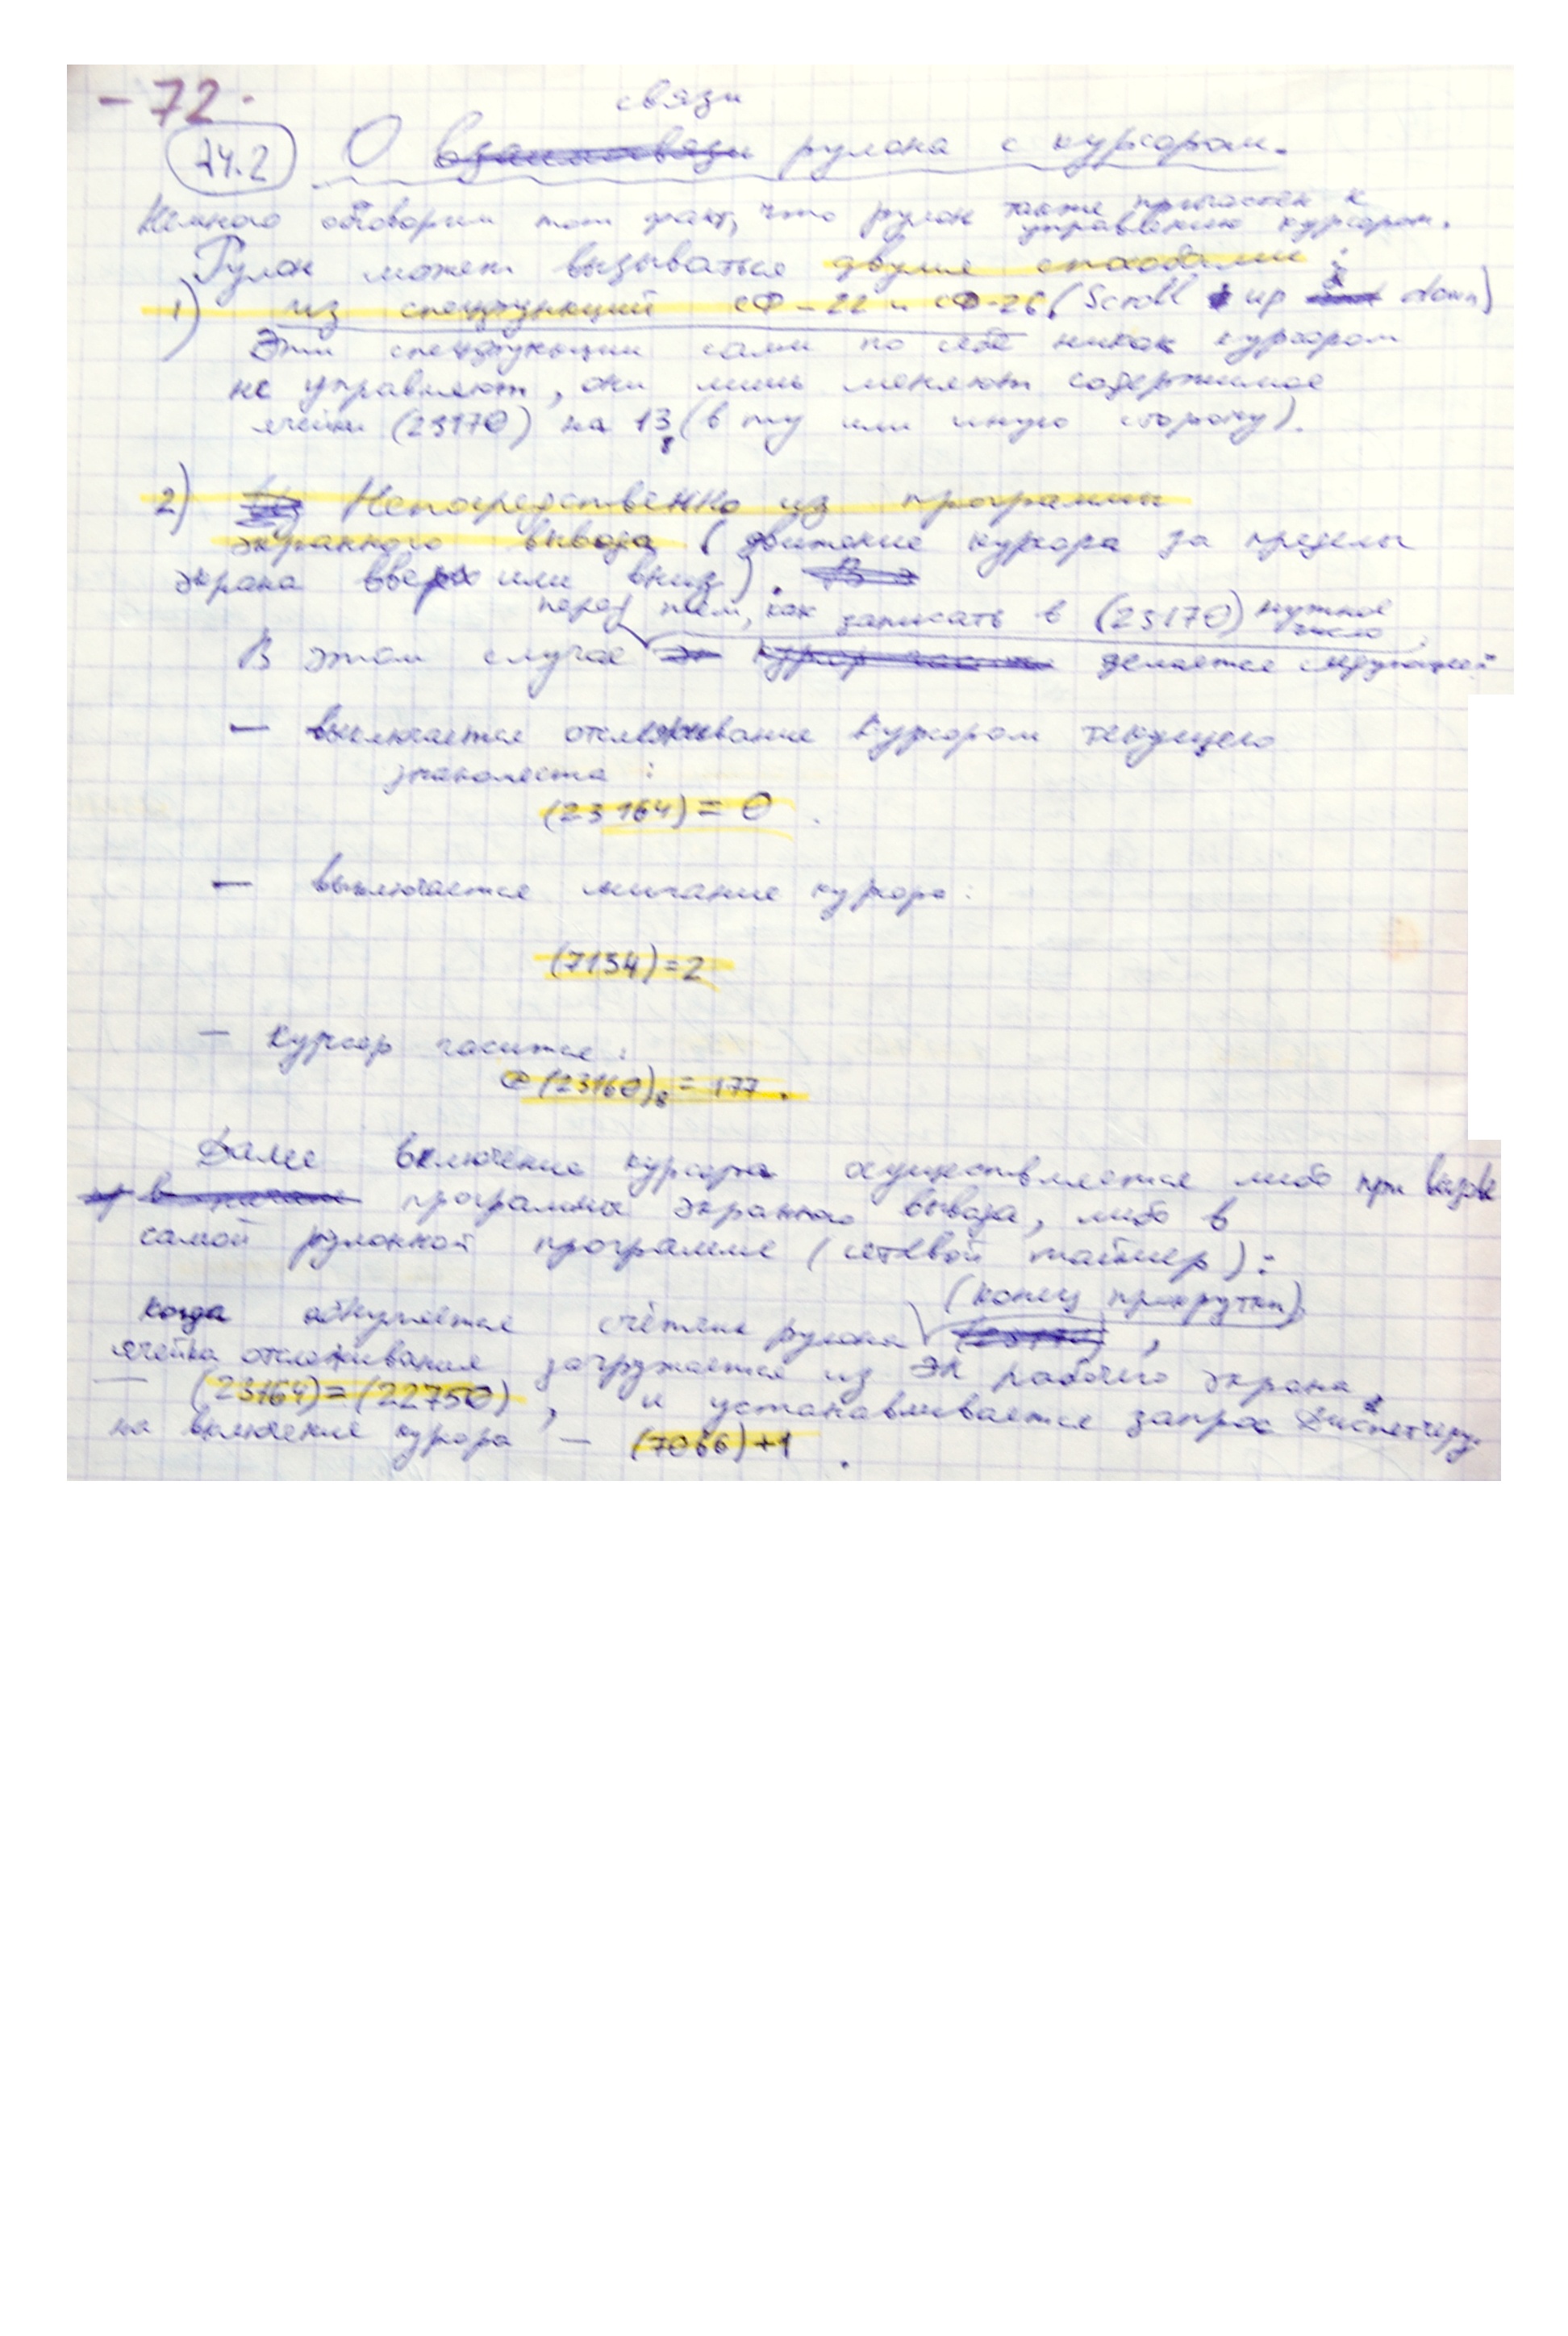 - 72 -
связи
24.2 О взаимосвязи рулона с курсором.
Немного обговорим тот факт, что рулон также причастен к
управлению курсором.
Рулон может вызываться двумя способами:
1) из спецфункций СФ-22 и СФ-26 (Scroll up & down)
Эти спецфункции сами по себе никак курсором
не управляют, они лишь меняют содержимое
ячейки (23170) на 13₈ (в ту или иную сторону).
2) Непосредственно из программы
экранного вывода (движение курсора за пределы
экрана вверх или вниз).
перед тем, как записать в (23170) нужное
число,
В этом случае делается следующее:
— выключается отслеживание курсором текущего
знакоместа:
(23164) = 0.
— выключается мигание курсора:
(7134)=2
— Курсор гасится:
@(23160)₈ = 177.
Далее включение курсора осуществляется либо при вызове
программы экранного вывода, либо в
самой рулонной программе (сетевой таймер):
(конец прокрутки)
Когда обнуляется счётчик рулона,
ячейка отслеживания загружается из ЭК рабочего экрана
— (23164)=(22750), и устанавливается запрос Диспетчеру
на включение курсора — (7066)+1.